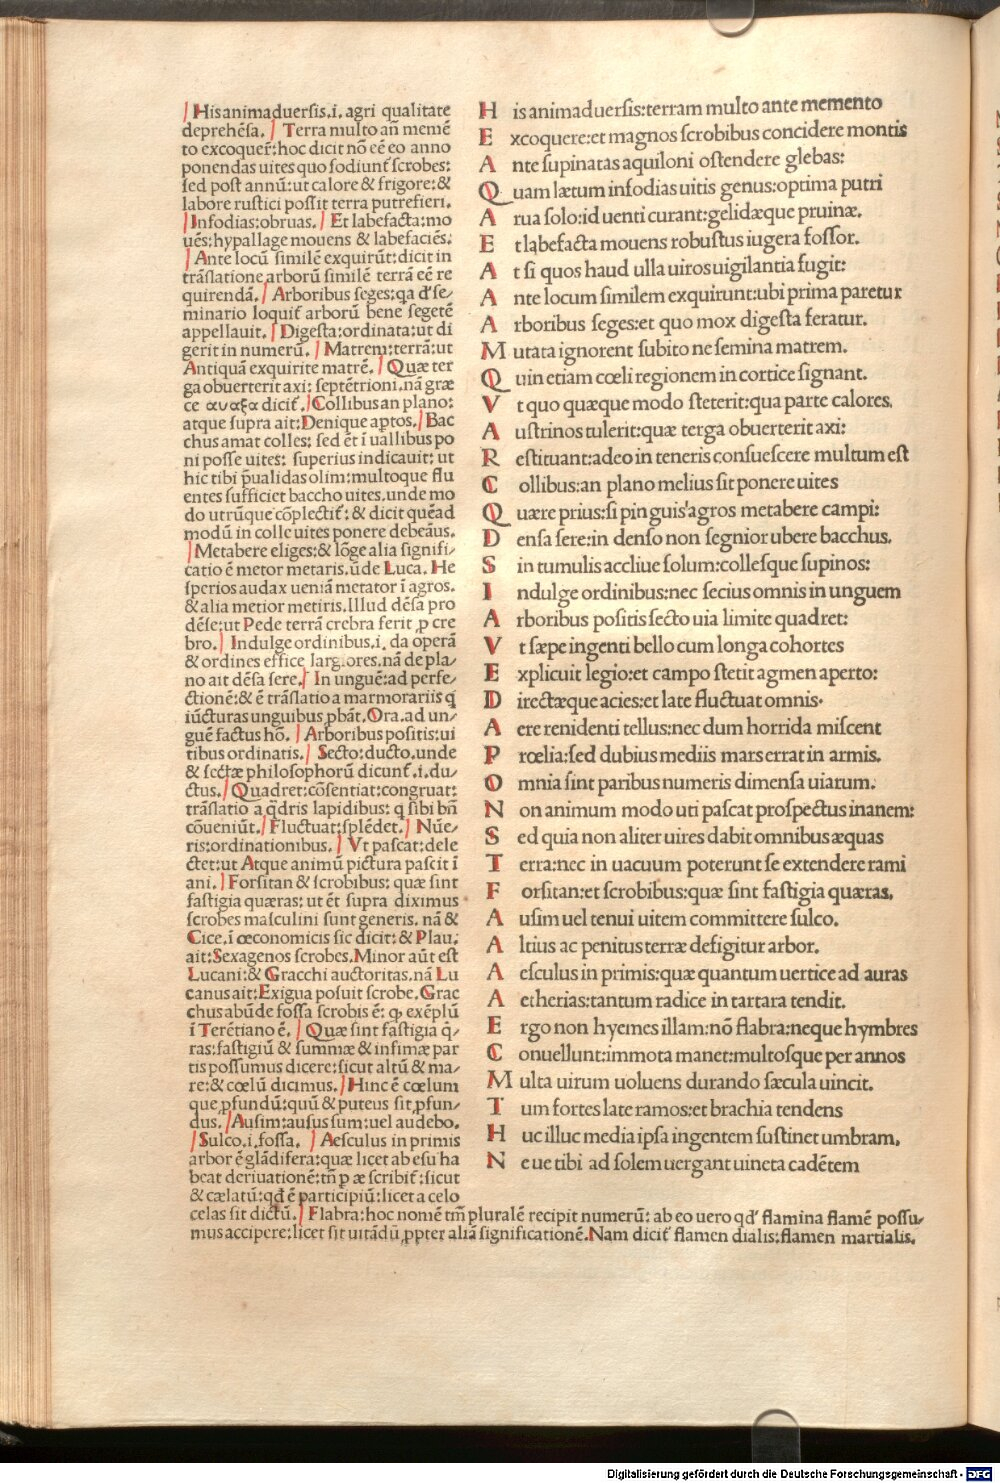 His animaduersis.i. agri qualitate
deprehēsa. Terra multo añ memē
to excoquer̃:hoc dicit nō eē eo anno
ponendas uites quo fodiunt̃ scrobes:
sed post annū:ut calore & frigore:&
labore rustici possit terra putrefieri.
Infodias:obruas. Et labefacta:mo
uēs:hypallage mouens & labefaciēs.
Ante locū similē exquirūt:dicit in
trāslatione arborū similē terrā eē re
quirendā. Arboribus seges:qa d'se/
minario loquit̃ arborū bene segetē
appellauit. Digesta:ordinata:ut di
gerit in numerū. Matrem:terrā:ut
Antiquā exquirite matrē. Quæ ter
ga obuerterit axi: septētrioni.nā græ
ce αναξα dicit̃. Collibus an plano:
atque supra ait:Denique aptos. Bac
chus amat colles: sed ēt ī uallibus po
ni posse uites: superius indicauit: ut
hic tibi p̄ualidas olim:multoque flu
entes sufficiet baccho uites.unde mo
do utrūque cōplectit̃: & dicit quēad
modū in colle uites ponere debeāus.
Metabere eliges:& lōge alia signifi/
catio ē metor metaris.ūde Luca. He
sperios audax ueniā metator ī agros.
& alia metior metiris.Illud dēsa pro
dēse:ut Pede terrā crebra ferit ꝓ cre
bro. Indulge ordinibus.i. da operā
& ordines effice largiores.nā de pla/
no ait dēsa sere. In unguē:ad perfe/
ctionē:& ē trāslatio a marmorariis q
iūcturas unguibus ꝓbāt.Ora.ad un/
guē factus hō. Arboribus positis:ui
tibus ordinatis. Secto:ducto.unde
& sectæ philosophorū dicunt̃.i.du/
ctus. Quadret:cōsentiat:congruat:
trāslatio a q̄dris lapidibus: q sibi bñ
cōueniūt. Fluctuat:splēdet. Nūe/
ris:ordinationibus. Vt pascat:dele
ctet:ut Atque animū pictura pascit ī
ani. Forsitan & scrobibus: quæ sint
fastigia quæras: ut ēt supra diximus
scrobes masculini sunt generis. nā &
Cice.ī œconomicis sic dicit:& Plau:
ait:Sexagenos scrobes.Minor aūt est
Lucani:& Gracchi auctoritas.nā Lu
canus ait:Exigua posuit scrobe.Grac
chus abūde fossa scrobis ē: ꝙ exēplū
ī Terētiano ē. Quæ sint fastigia q̄/
ras:fastigiū & summæ & infimæ par
tis possumus dicere:sicut altū & ma/
re:& cœlū dicimus. Hinc ē cœlum
que ꝓfundū:quū & puteus sit ꝓfun/
dus. Ausim:ausus sum:uel audebo.
Sulco.i.fossa. Aesculus in primis
arbor ē glādifera:quæ licet ab esu ha
beat deriuationē:tm̄ p æ scribit̃:sicut
& cælatū:qđ ē participiū:licet a celo
celas sit dictū. Flabra:hoc nomē tm̄ pluralē recipit numerū: ab eo uero qđ flamina flamē possu/
mus accipere:licet sit uitādū ꝓpter aliā significationē.Nam dicit̃ flamen dialis:flamen martialis.
H is animaduersis:terram multo ante memento
E xcoquere:et magnos scrobibus concidere montis
A nte supinatas aquiloni ostendere glebas:
Q uam lætum infodias uitis genus:optima putri
A rua solo:id uenti curant:gelidæque pruinæ.
E t labefacta mouens robustus iugera fossor.
A t si quos haud ulla uiros uigilantia fugit:
A nte locum similem exquirunt:ubi prima paretur
A rboribus seges:et quo mox digesta feratur.
M utata ignorent subito ne semina matrem.
Q uin etiam cœli regionem in cortice signant.
V t quo quæque modo steterit:qua parte calores.
A ustrinos tulerit:quæ terga obuerterit axi:
R estituant:adeo in teneris consuescere multum est
C ollibus:an plano melius sit ponere uites
Q uære prius:si pinguis agros metabere campi:
D ensa sere:in denso non segnior ubere bacchus.
S in tumulis accliue solum:collesque supinos:
I ndulge ordinibus:nec secius omnis in unguem
A rboribus positis secto uia limite quadret:
V t sæpe ingenti bello cum longa cohortes
E xplicuit legio:et campo stetit agmen aperto:
D irectæque acies:et late fluctuat omnis.
A ere renidenti tellus:nec dum horrida miscent
P rœlia:sed dubius mediis mars errat in armis.
O mnia sint paribus numeris dimensa uiarum.
N on animum modo uti pascat prospectus inanem:
S ed quia non aliter uires dabit omnibus æquas
T erra:nec in uacuum poterunt se extendere rami
F orsitan:et scrobibus:quæ sint fastigia quæras.
A usim uel tenui uitem committere sulco.
A ltius ac penitus terræ defigitur arbor.
A esculus in primis:quæ quantum uertice ad auras
A etherias:tantum radice in tartara tendit.
E rgo non hyemes illam:nō flabra:neque hymbres
C onuellunt:immota manet:multosque per annos
M ulta uirum uoluens durando sæcula uincit.
T um fortes late ramos:et brachia tendens
H uc illuc media ipsa ingentem sustinet umbram.
N eue tibi ad solem uergant uineta cadētem
Digitalisierung gefördert durch die Deutsche Forschungsgemeinschaft - DFG